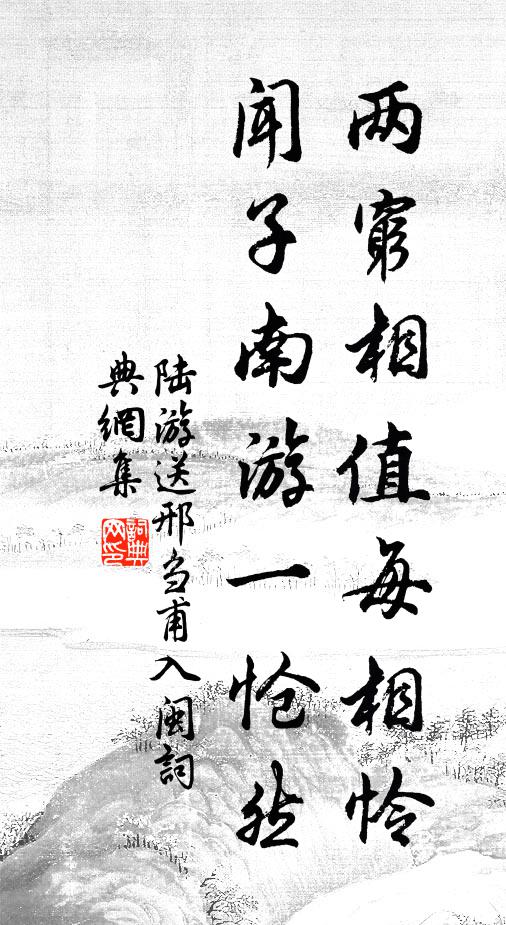 两穷相值每相怜
闻子南游一怆然
陆游送邢刍甫入闽词
典網集
詞典网印